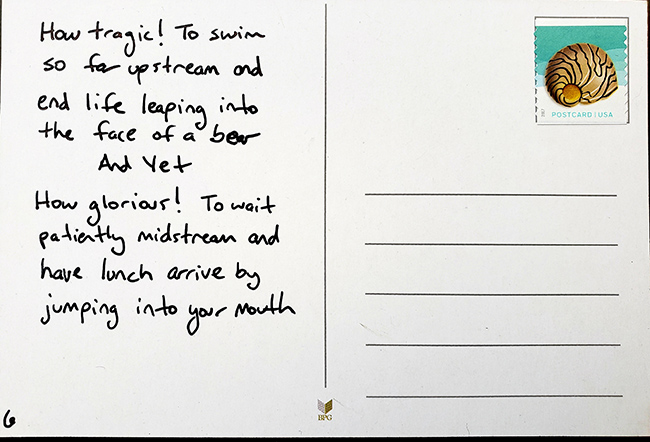 How tragic! To swim
so far upstream and
end life leaping into
the face of a bear
And Yet
How glorious! To wait
patiently midstream and
have lunch arrive by
jumping into your mouth
6
POSTCARD | USA
BPG